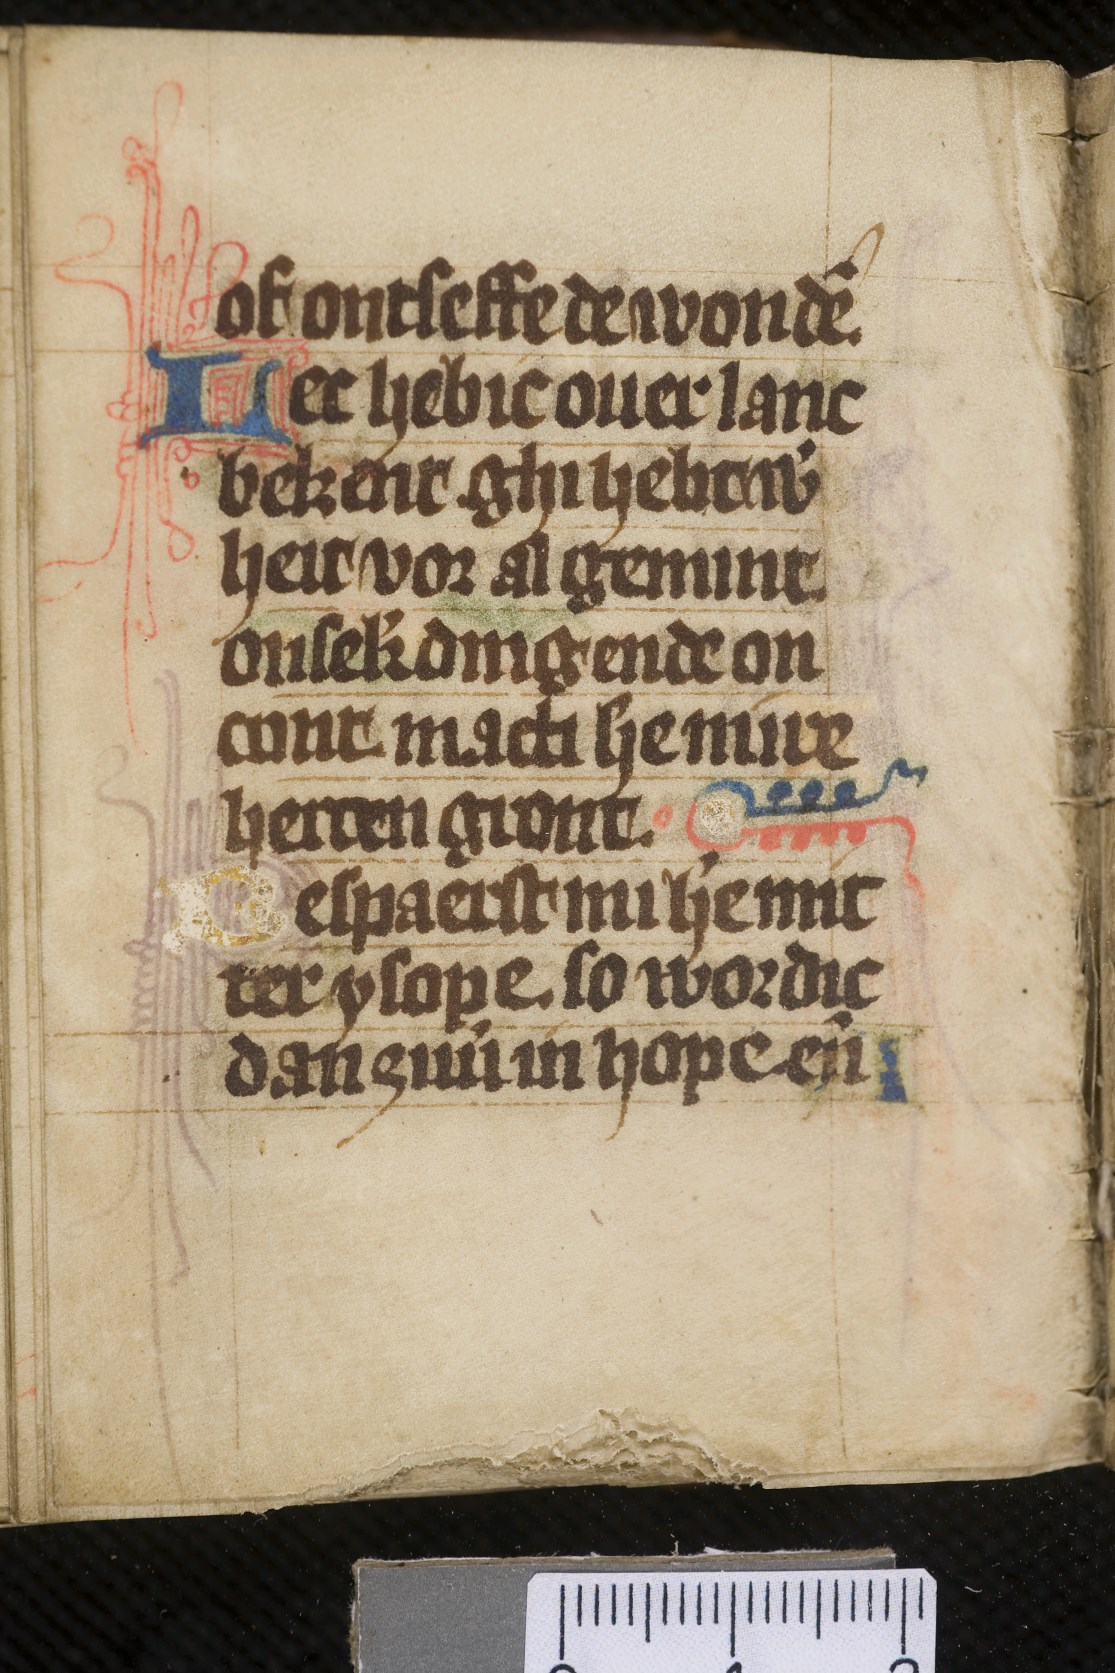 of ontfeffe de wondē.
Lec hebic ouer lanc
bekent. ghi hebt
heit vor al gemint.
onsek dingende on
cont macti he mi
herren gront.
Bespaerst mi he mit
ter ysope. so wordic
dan in hope. eñ